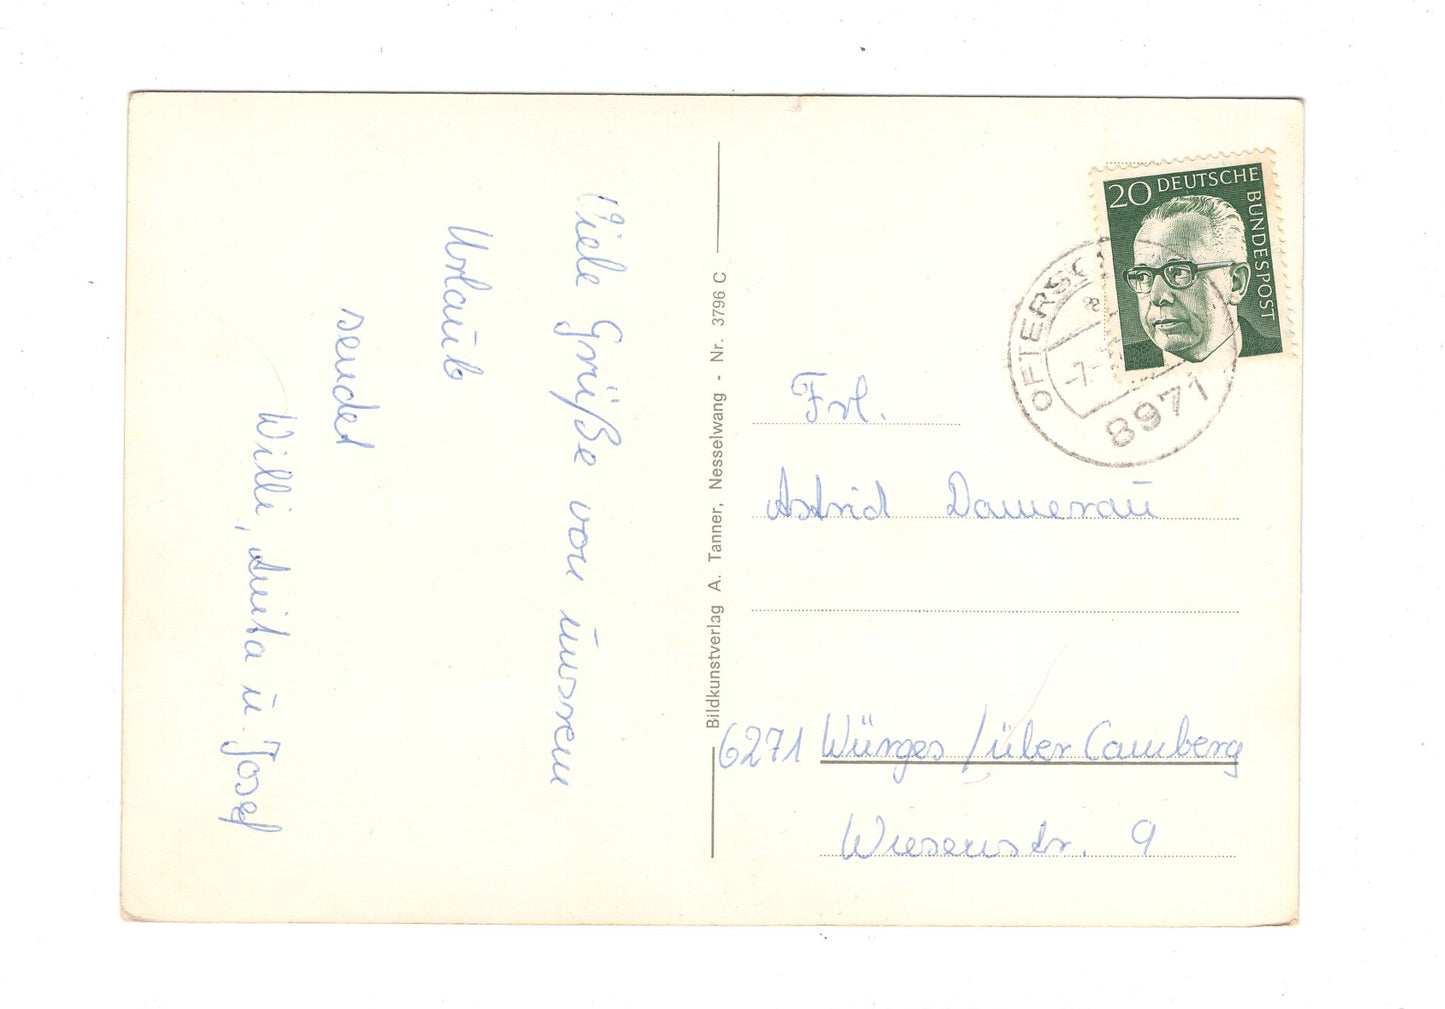 Viele Grüße von unsrem
Urlaub
sendet
Willi, Anita u. Josef
Bildkunstverlag A. Tanner, Nesselwang - Nr. 3796 C
20 DEUTSCHE
BUNDESPOST
OFTERSC
-7.-
8971
Frl.
Astrid Damerau
6271 Würges / über Camberg
Wiesenstr. 9